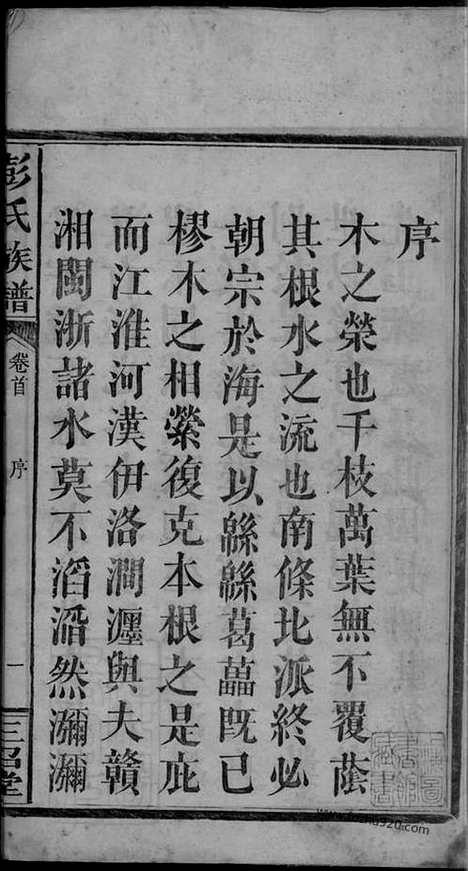 序
木之榮也千枝萬葉無不覆蔭
其根水之流也南條北派終必
朝宗於海是以緜緜葛藟既已
樛木之相縈復克本根之是庇
而江淮河漢伊洛澗瀍與夫贛
湘閩浙諸水莫不滔滔然瀰瀰
彭氏族譜
卷首
序
一